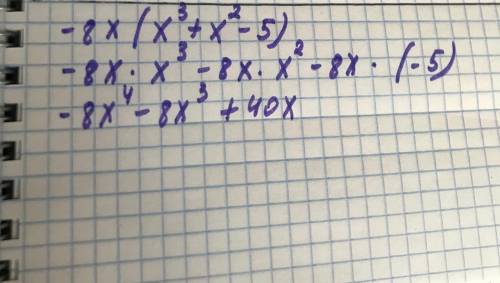 -8x(x³+x²-5)
-8x·x³-8x·x²-8x·(-5)
-8x⁴-8x³+40x